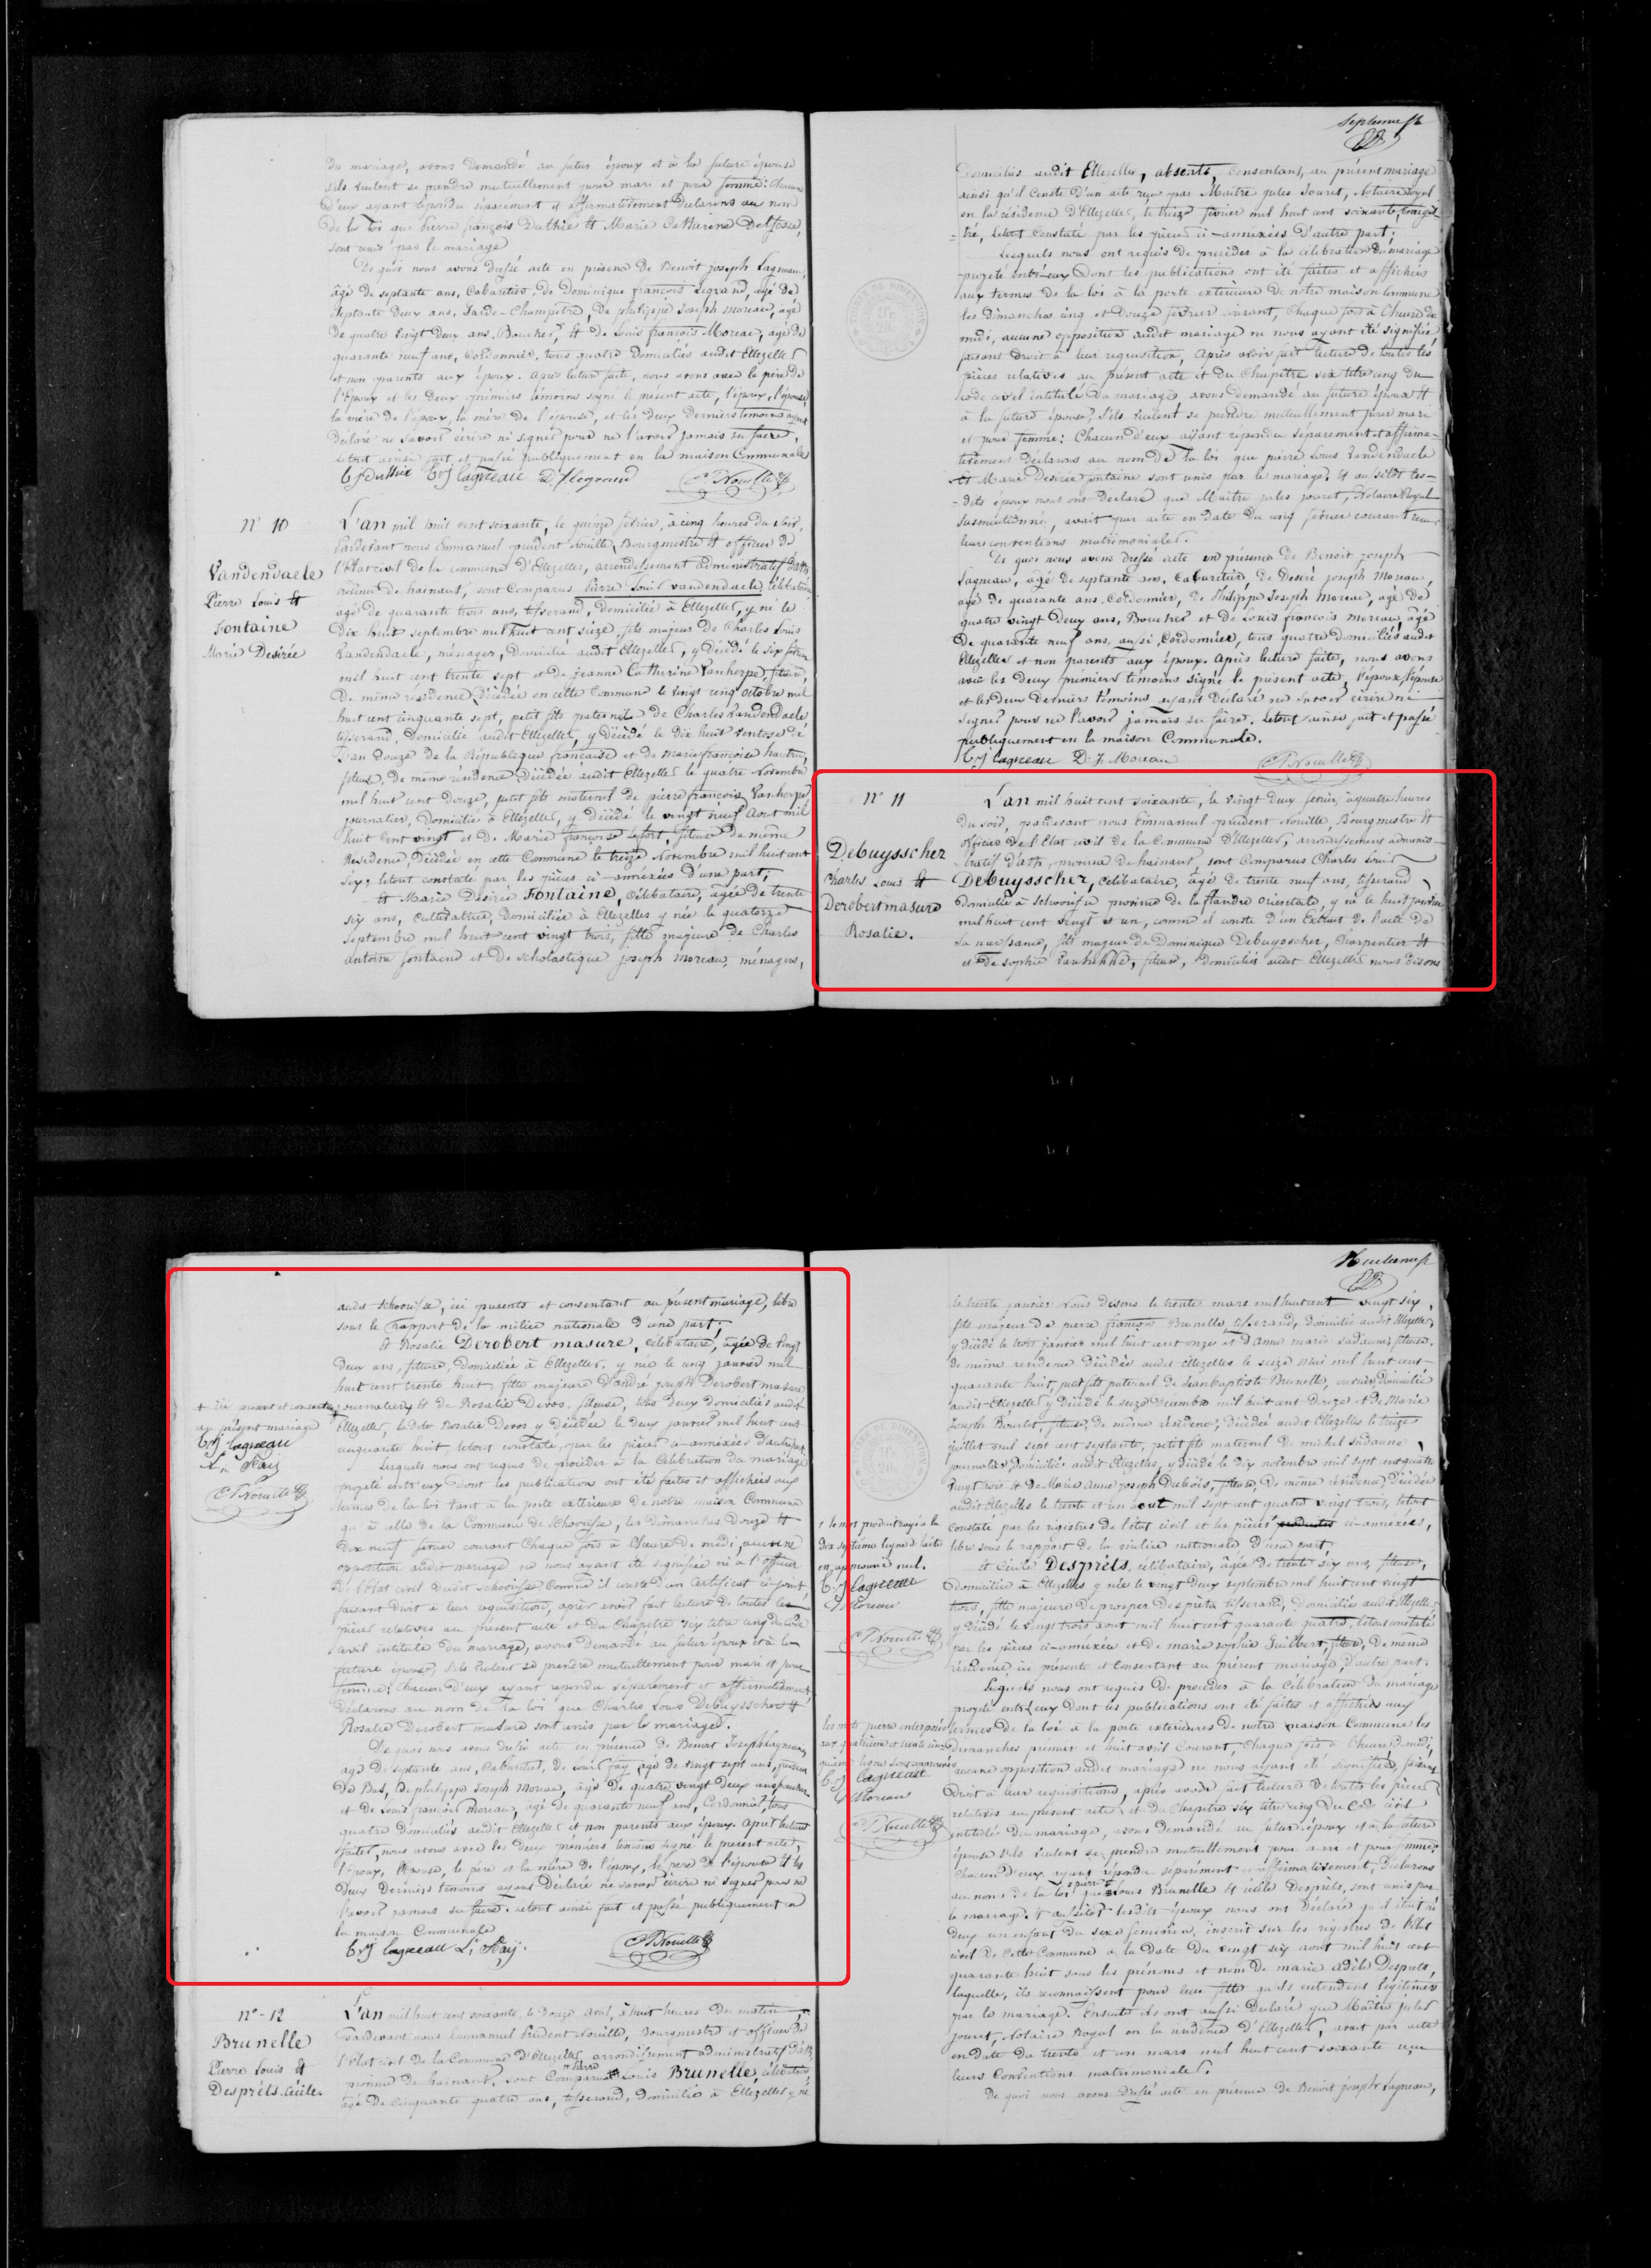 du mariage, avons demandé au futur époux et à la future épouse
s'ils veulent se prendre mutuellement pour mari et pour femme: Chacun
d'eux ayant répondu séparement et affirmativement déclarons au nom
de la loi que Pierre françois Duthie et Marie Catherine Delfosse,
sont unis par le mariage
De quoi nous avons dressé acte en présence de Benoit joseph Lagneau,
âgé de septante ans, Cabaretier, de Dominique françois Legrand, âgé de
septante deux ans, Garde-Champêtre, de philippe Joseph moreau, agé
de quatre vingt deux ans, Boucher, et de Louis françois Moreau, agé de
quarante neuf ans, Cordonnier, tous quatre domiciliés audit Ellezelles
et non parents aux époux. Après lecture faite, nous avons avec le père de
l'Epoux et les deux premiers témoins signé le présent acte, l'époux, l'épouse,
la mère de l'époux, la mère de l'épouse, et les deux derniers témoins ayant
déclaré ne savoir écrire ni signer pour ne l'avoir jamais su faire,
letout ainsi fait et passé publiquement en la maison Communale
Bj Lagneau D f Legrand P. Nouille
N° 10
Vandendaele
Pierre Louis et
Fontaine
Marie Desirée
L'an mil huit cent soixante, le quinze février, à cinq heures du soir,
Pardevant nous Emmanuel prudent Nouille, Bourgmestre et officier de
l'Etat civil de la commune d'Ellezelles, arrondissement administratif d'ath
province de hainaut, sont Comparus Pierre Louis vandendaele, célibataire
agé de quarante trois ans, tisserand, domicilié à Ellezelles, y né le
dix huit septembre mil huit cent seize, fils majeur de Charles Louis
Vandendaele, ménager, domicilié audit Ellezelles, y décédé le six février
mil huit cent trente sept et de jeanne Catherine Vanherpe, fileuse,
de même résidence décédée en cette Commune le vingt cinq octobre mil
huit cent cinquante sept, petit fils paternel de Charles Vandendaele,
tisserand, domicilié audit Ellezelles, y décédé le dix huit ventose de
l'an douze de la République française et de marie françoise
fileuse, de même résidence décédée audit Ellezelles le quatre Novembre
mil huit cent douze, petit fils maternel de pierre françois Vanherpe
journalier, domicilié à Ellezelles, y décédé le vingt neuf Aout mil
huit Cent vingt et de Marie françoise Lefort, fileuse de même
Résidence, décédée en cette Commune le treize Novembre mil huit cent
six, letout constaté par les pièces ci-annexées d'une part;
et Marie Désirée Fontaine, célibataire, âgée de trente
six ans, Cultivatrice, domiciliée à Ellezelles y née le quatorze
Septembre mil huit cent vingt trois, fille majeure de Charles
antoine fontaine et de scholastique joseph moreau, ménagers,
septième f.
domiciliés audit Ellezelles, absents, consentant, au présent mariage
ainsi qu'il Conste d'un acte reçu par Maitre jules Jouret, Notaire Royal
en la résidence d'Ellezelles, le treize février mil huit cent soixante, Enregis
tré, letout Constaté par les pièces ci-annexées d'autre part;
Lesquels nous ont requis de procéder à la célébration du mariage
projeté entr'eux, dont les publications ont été faites et affichées
aux termes de la loi à la porte extérieure de notre maison Commune
les dimanches cinq et douze février courant, chaque fois à l'heure de
midi, aucune opposition audit mariage ne nous ayant été signifiée
faisant droit à leur réquisition, Après avoir fait lecture de toutes les
pièces relatives au présent acte et du Chapitre six titre cinq du
code civil intitulé du mariage avons demandé au future époux et
à la future épouse, s'ils veulent se prendre mutuellement pour mari
et pour femme: Chacun d'eux ayant répondu séparement et affirma-
tivement déclarons au nom de la loi que pierre Louis Vandendaele
et Marie Desirée fontaine sont unis par le mariage. Et aussitôt les-
-dits époux nous ont Declaré que Maitre jules jouret, Notaire Royal
susmentionné, avait par acte en date du cinq février courant reçu
leurs conventions matrimoniales.
De quoi nous avons dressé acte en présence de Benoit joseph
Lagneau, agé de septante ans, Cabaretier, de Desiré joseph Moreau,
agé de quarante ans, Cordonnier, de Philippe Joseph Moreau, agé de
quatre vingt deux ans, Boucher et de Louis françois Moreau, agé
de quarante neuf ans, aussi Cordonnier, tous quatre domiciliés audit
Ellezelles et non parents aux époux. Après lecture faite, nous avons
avec les deux premiers témoins signé le présent acte, l'époux, l'épouse
et les deux derniers témoins ayant déclaré ne savoir écrire ni
signer pour ne l'avoir jamais su faire. Letout ainsi fait et passé
publiquement en la maison Communale.
Bj Lagneau D. J. Moreau P. Nouille
N° 11
Debuysscher
Charles Louis et
Derobertmasure
Rosalie.
L'an mil huit cent soixante, le vingt deux février, à quatre heures
du soir, pardevant nous Emmanuel prudent Nouille, Bourgmestre et
officier de l'Etat civil de la Commune d'Ellezelles, arrondissement adminis
tratif d'ath, province de hainaut, sont Comparus Charles Louis
Debuysscher, Célibataire, âgé de trente neuf ans, tisserand,
domicilié à Schoorisse province de la flandre orientale, y né le huit janvier
mil huit cent vingt et un, comme il conste d'un Extrait de l'acte de
sa naissance, fils majeur de Dominique Debuysscher, Charpentier et
et de sophie Vanhekke, fileuse, domiciliés audit Ellezelles nous disons
audit Schoorisse, ici présents et consentant au présent mariage, libre
sous le rapport de la milice nationale d'une part;
Et Rosalie Derobert masure, célibataire, âgée de vingt
deux ans, fileuse, domiciliée à Ellezelles, y née le cinq janvier mil
huit cent trente huit, fille majeure d'andré joseph Derobert masure
journalier, et de Rosalie Devos, fileuse, tous deux domiciliés audit
Ellezelles, ladite Rosalie Devos y décédée le deux janvier mil huit cent
cinquante huit, letout constaté par les pièces ci-annexées d'autre part.
+ ici présent et consentant
au présent mariage
Bj Lagneau
L. Faÿ
P. Nouille
Lesquels nous ont requis de procéder à la Célébration du mariage
projeté entr'eux dont les publication ont été faites et affichées aux
termes de la loi tant à la porte extérieure de notre maison Commune
qu'à celle de la Commune de Schoorisse, les dimanches douze et
dix neuf février courant chaque fois à l'heure de midi, aucune
opposition audit mariage ne nous ayant été signifiée ni à l'officier
de l'Etat civil dudit schoorisse Comme il conste d'un Certificat ci-joint,
faisant droit à leur réquisition, après avoir fait lecture de toutes les
pièces relatives au présent acte et du Chapitre six titre cinq du Code
civil intitulé du mariage, avons demandé au futur époux et à la
future épouse, s'ils veulent se prendre mutuellement pour mari et pour
femme: Chacun d'eux ayant répondu séparement et affirmativement
déclarons au nom de la loi que Charles Louis Debuysscher et
Rosalie Derobert masure sont unis par le mariage.
De quoi nous avons dressé acte en présence de Benoit Joseph Lagneau,
agé de septante ans, Cabaretier, de Louis Faÿ, agé de vingt sept ans,
de Bas, de philippe joseph Moreau, âgé de quatre vingt deux ans, boucher
et de Louis françois Moreau, agé de quarante neuf ans, Cordonnier, tous
quatre domiciliés audit Ellezelles et non parents aux époux. Après lecture
faites, nous avons avec les deux premiers témoins signé le présent acte,
l'époux, l'épouse, le père et la mère de l'époux, le père de l'épouse et les
deux derniers témoins ayant déclaré ne savoir écrire ni signer pour ne
l'avoir jamais su faire. Letout ainsi fait et passé publiquement en
la maison Communale
Bj Lagneau L. Faÿ. P. Nouille
N° 12
Brunelle
Pierre Louis et
Desprêts Cécile
L'an mil huit cent soixante, le douze avril, à huit heures du matin,
Pardevant nous Emmanuel Prudent Nouille, Bourgmestre et officier de
l'Etat civil de la Commune d'Ellezelles, arrondissement administratif d'ath
province de hainaut, sont Comparus Pierre Louis Brunelle, célibataire,
âgé de Cinquante quatre ans, tisserand, domicilié à Ellezelles y né
Huitième f.
le trente janvier Nous disons le trente mars mil huit cent vingt six,
fils majeur de pierre françois Brunelle, tisserand, domicilié audit Ellezelles
y décédé le trois janvier mil huit cent onze et d'anne marie Sadaune, fileuse,
de même résidence décédée audit Ellezelles le seize mai mil huit cent
quarante huit, petit fils paternel de Jean baptiste Brunelle, ouvrier, domicilié
audit Ellezelles y décédé le seize décembre mil huit cent douze et de Marie
Joseph Bourlet, fileuse, de même résidence, décédée audit Ellezelles le treize
juillet mil sept cent septante, petit fils maternel de michel Sadaune
journalier, domicilié audit Ellezelles, y décédé le dix novembre mil sept cent quatre
vingt trois et de Marie anne joseph Dubois, fileuse, de même résidence, décédée
audit Ellezelles le trente et un aout mil sept cent quatre vingt trois, letout
constaté par les registres de l'état civil et les pièces produites ci-annexées,
libre sous le rapport de la milice nationale d'une part;
+ le mot produites rayé à la
dix septième ligne d'
en approuvé nul.
Bj Lagneau
Moreau
P. Nouille
Et Cécile Desprêts, célibataire, âgée de trente six ans, fileuse,
domiciliée à Ellezelles y née le vingt deux septembre mil huit cent vingt
trois, fille majeure de prosper Desprêts tisserand, domicilié audit Ellezelles
y décédé le vingt trois aout mil huit cent quarante quatre, letout constaté
par les pièces ci-annexées et de marie sophie Guilbert, fileuse, de même
résidence ici présente et Consentant au présent mariage, d'autre part.
Lesquels nous ont requis de procéder à la Célébration du mariage
projeté entr'eux dont les publications ont été faites et affichées aux
termes de la loi à la porte extérieures de notre maison Commune les
dimanches premier et huit avril Courant, Chaque fois à l'heure de midi,
aucune opposition audit mariage ne nous ayant été signifiée, faisant
droit à leur réquisitions, après avoir fait lecture de toutes les pièces
relatives au présent acte et du Chapitre six titre cinq du Code Civil
intitulé du mariage, avons demandé au futur époux et à la future
épouse s'ils veulent se prendre mutuellement pour mari et pour femme:
Chacun d'eux ayant répondu séparement et affirmativement, déclarons
au nom de la loi que pierre Louis Brunelle et Cécile Desprêts, sont unis par
le mariage. Et aussitôt lesdits époux nous ont déclaré qu'il était né
deux un enfant du sexe féminin, inscrit sur les registres de l'état
civil de Cette Commune à la date du vingt six aout mil huit cent
quarante huit sous les prénoms et nom de marie adèle Desprêts,
laquelle, ils reconnaissent pour leur fille qu'ils entendent légitimer
par le mariage. Ensuite ils ont aussi déclaré que Maitre jules
jouret, Notaire Royal en la résidence d'Ellezelles, avait par acte
en date du trente et un mars mil huit cent soixante reçu
leurs Conventions matrimoniales.
De quoi nous avons dressé acte en présence de Benoit joseph Lagneau,
les mots pierre interposés
aux quatrième et trente cinq
quième ligne sont approuvés
Bj Lagneau
Moreau
P. Nouille